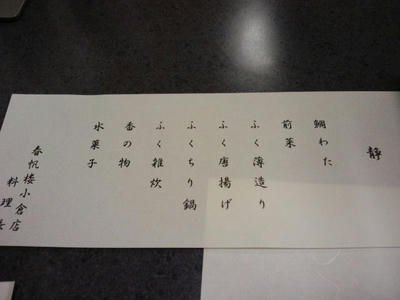 静
鯛わた
前菜
ふく薄造り
ふく唐揚げ
ふくちり鍋
ふく雑炊
香の物
水菓子
春帆楼小倉店
料理長